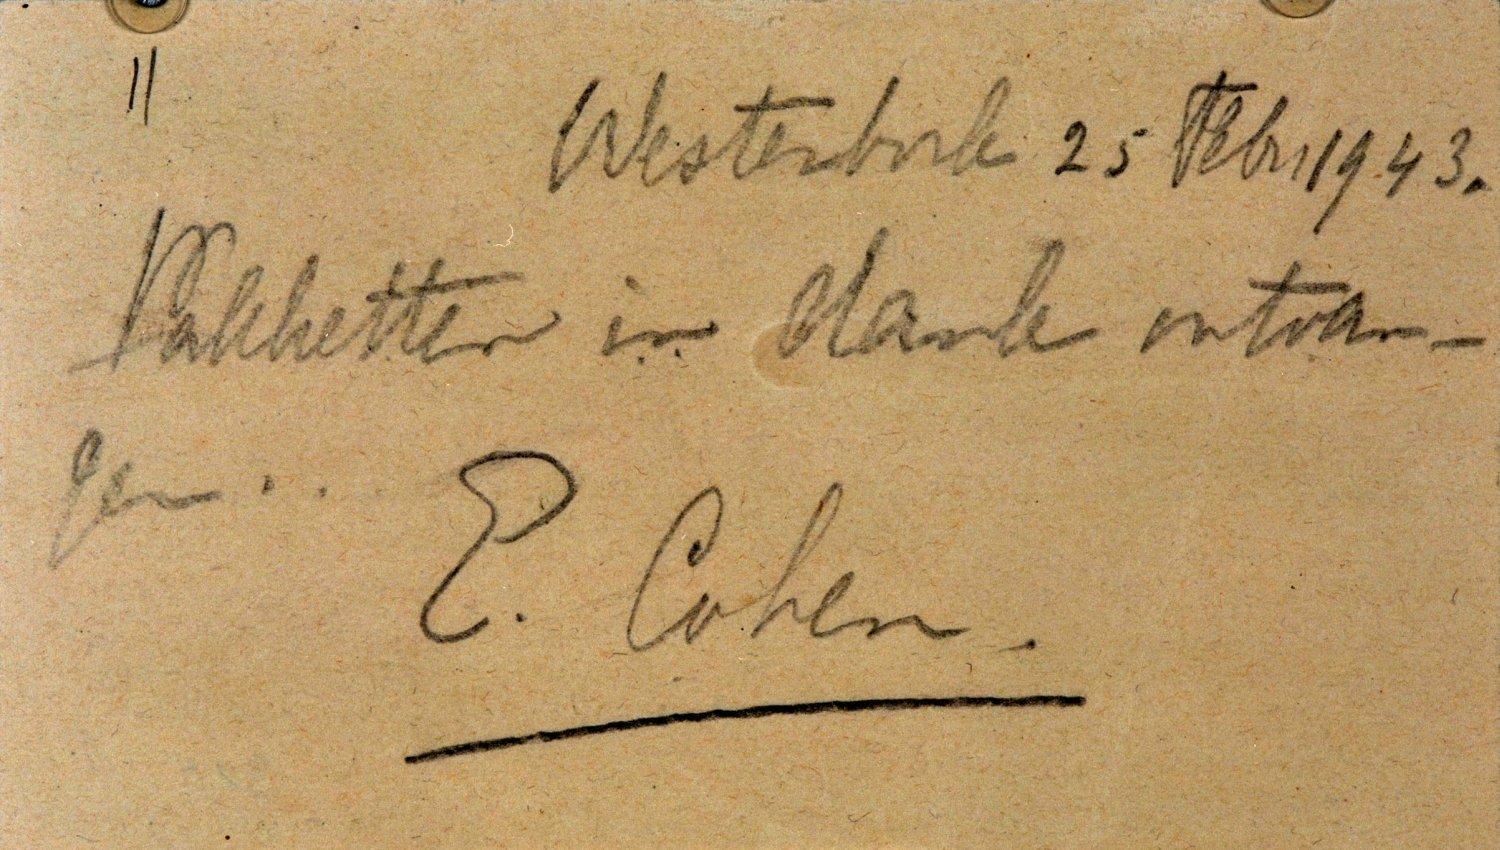 11
Westerbork 25 Febr 1943.
Pakketten in dank ontvan-
gen..
E. Cohen.